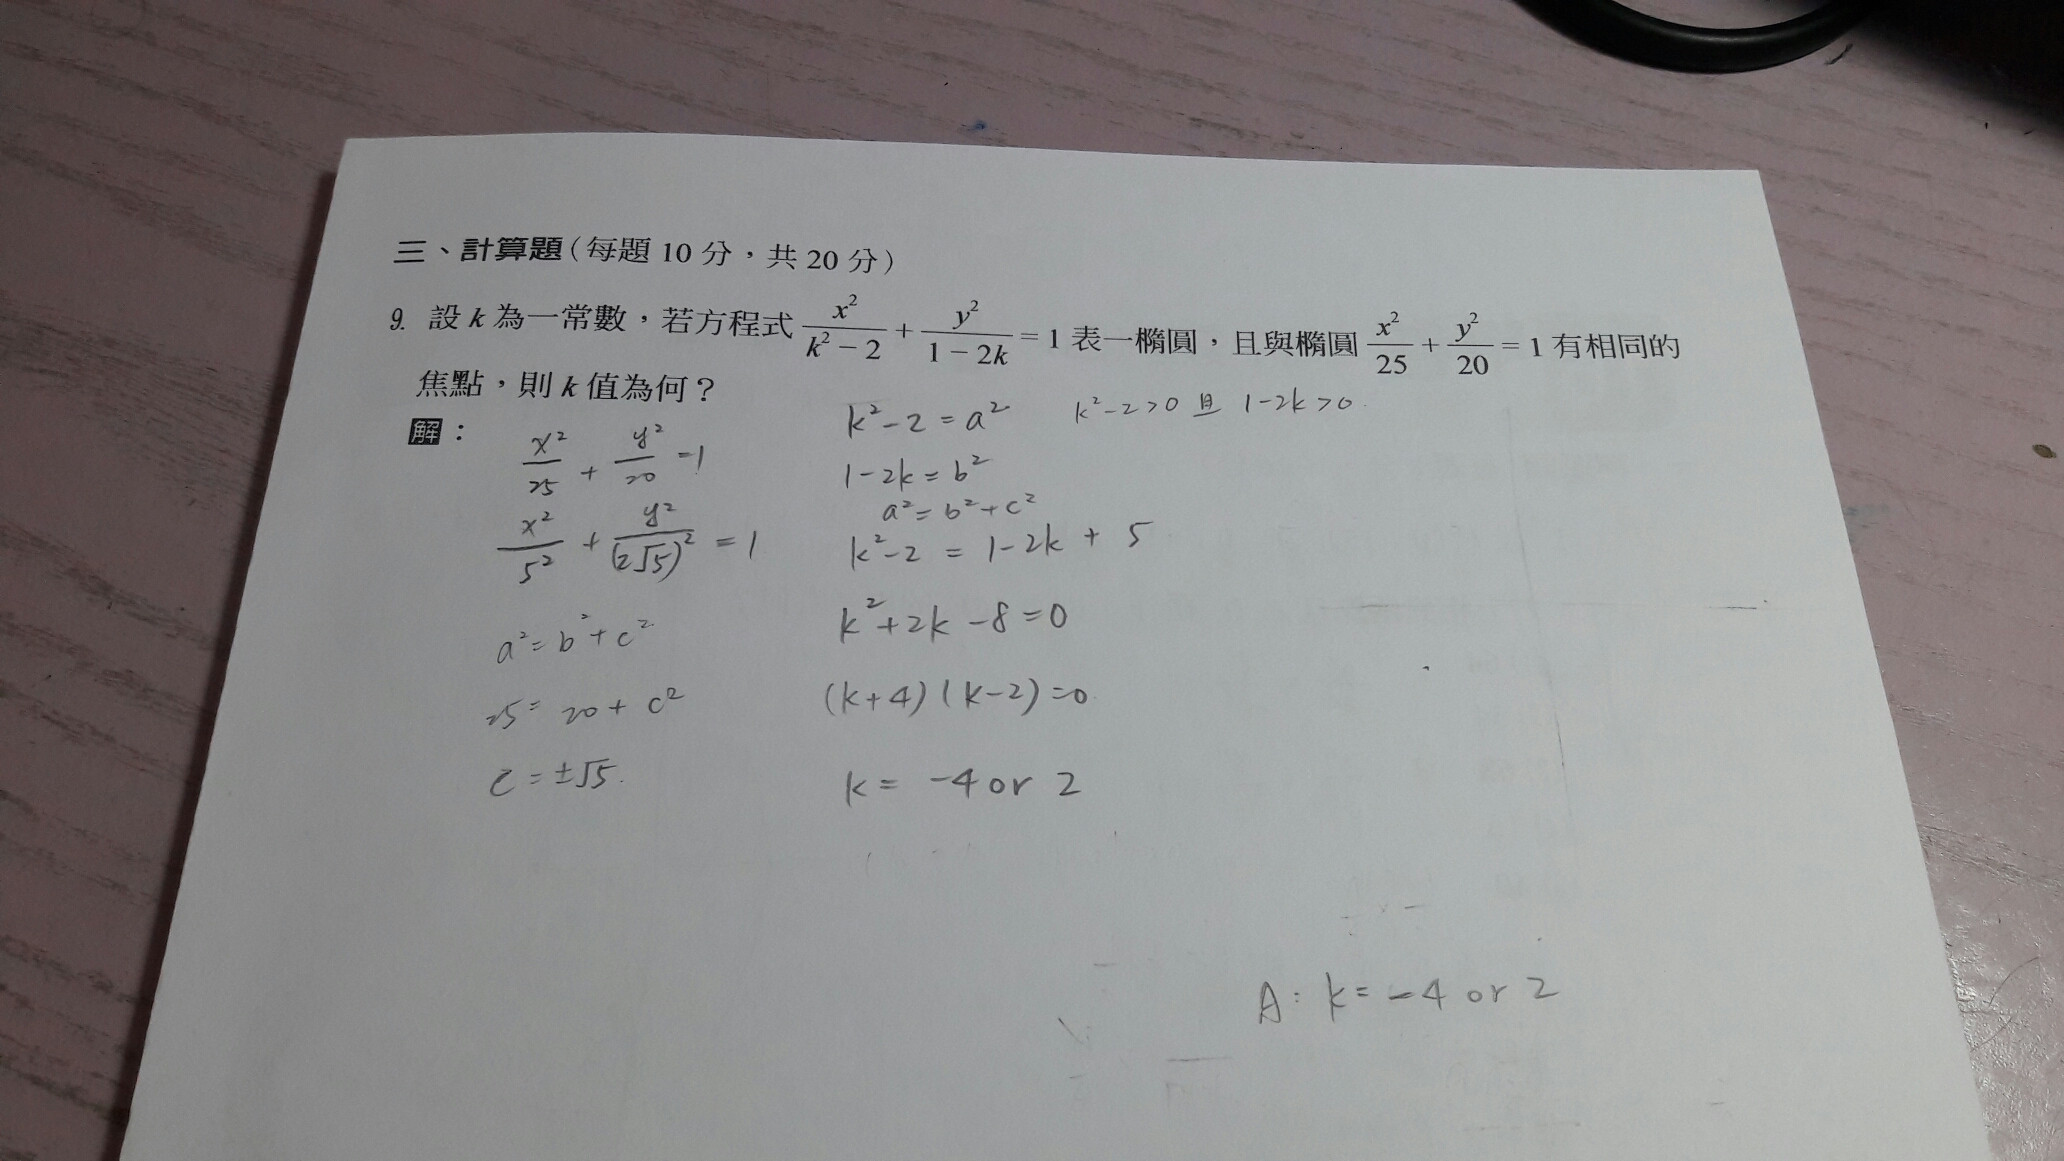 三、計算題(每題 10 分,共 20 分)
9. 設 k 為一常數,若方程式 x²/(k²-2) + y²/(1-2k) = 1 表一橢圓,且與橢圓 x²/25 + y²/20 = 1 有相同的
焦點,則 k 值為何?
解:
x²/25 + y²/20 = 1
x²/5² + y²/(2√5)² = 1
a² = b² + c²
25 = 20 + c²
c = ±√5.
k²-2 = a²
k²-2>0 且 1-2k>0.
1-2k = b²
a² = b² + c²
k²-2 = 1-2k + 5
k²+2k-8=0
(k+4)(k-2)=0
k = -4 or 2
A: k = -4 or 2